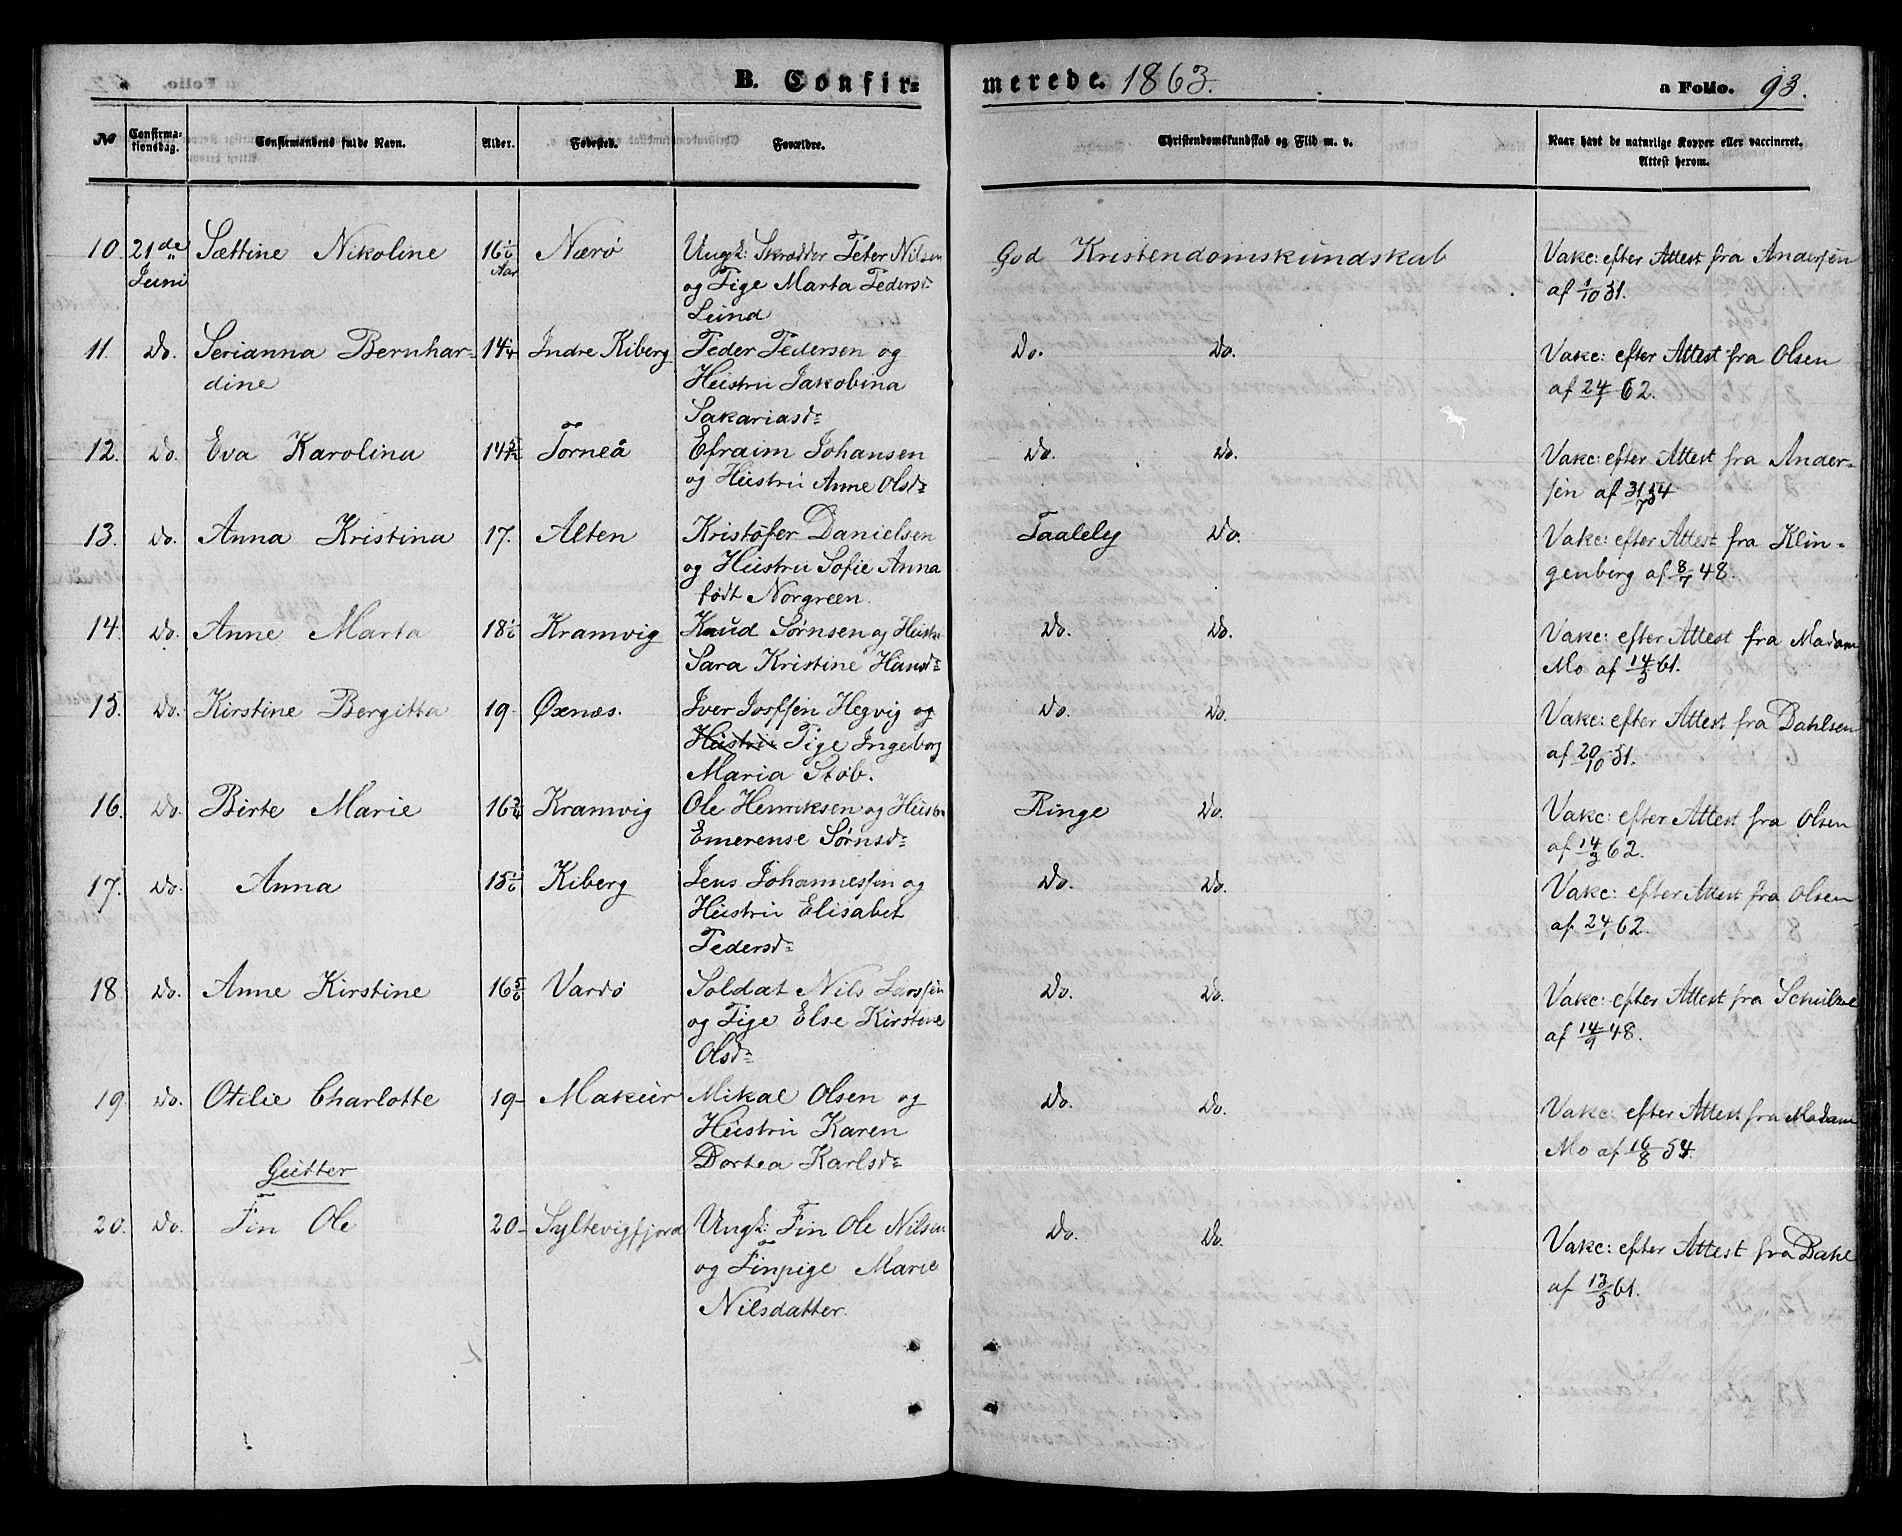 B. Confirmerede. 1863. a Folio. 93.
No Confirmationsdag. Confirmandens fulde Navn. Alder. Fødested. Forældre. Christendomskundskab og Flid m. v. Naar havt de naturlige Kopper eller vaccineret. Attest herom.
10. 21de Sættine Nikoline 16 1/6 Nærø Ungk: Skrædder Peter Nilsen God Kristendomskundskab Vakc: efter Attest fra Andersen
Juni Aar og Pige Marta Pedersd= af 1/10 51.
Lund
11. Do. Serianna Bernhar= 14 1/4 Indre Kiberg Peder Pedersen og Do. Do. Vakc: efter Attest fra Olsen
dine Hustru Jakobina af 24/1 62.
Sakariasd=
12. Do. Eva Karolina 14 5/12 Torneå Efraim Johansen Do. Do. Vakc: efter Attest fra Ander=
og Hustru Anne Olsd= sen af 31/10 54
13. Do. Anna Kristina 17. Alten Kristofer Danielsen Taalelig Do. Vakc: efter Attest fra Klin=
og Hustru Sofie Anna genberg af 8/7 48.
født Norgreen.
14. Do. Anne Marta 18 1/6 Kramvig Knud Sørnsen og Hustru Do. Do. Vakc: efter Attest fra Madam
Sara Kristine Hansd= Mo af 14/5 61.
15. Do. Kirstine Bergitta 19 - Øxnæs. Iver Josefsen Hegvig og Do. Do. Vakc: efter Attest fra Dahlsen
Hustru Pige Ingeborg af 20/10 51.
Maria Stob.
16. Do. Birte Marie 16 3/4 Kramvig Ole Henriksen og Hustru Ringe Do. Vakc: efter Attest fra Olsen
Emerense Sørnsd= af 14/3 62.
17. Do. Anna 15 1/6 Kiberg Jens Johannessen og Do. Do. Vakc: efter Attest fra Olsen
Hustru Elisabet af 24/1 62.
Pedersd=
18. Do. Anne Kirstine 16 5/6 Vardø Soldat Nils Larssen Do. Do. Vakc: efter Attest fra Schulze
og Pige Else Kirstene af 14/9 48.
Olsd=
19 Do. Otilie Charlotte 19 - Makur Mikal Olsen og Do. Do. Vakc: efter Attest fra Madam
Hustru Karen Mo af 16/8 54.
Dortea Karlsd=
Gutter
20. Do. Fin Ole 20 - Syltevigfjord Ungk: Fin Ole Nilsen Do. Do. Vakc: efter Attest fra Dahl
og Finpige Marie af 13/5 61.
Nilsdatter.